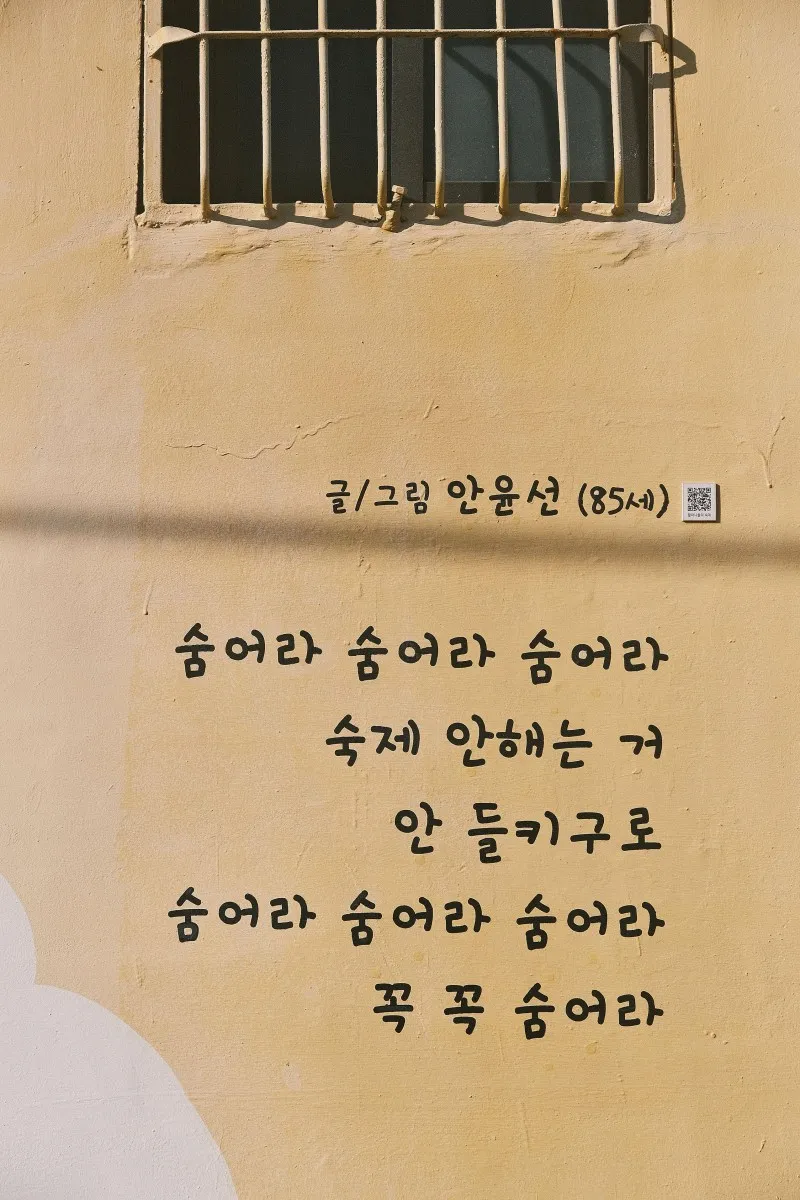 글/그림 안윤선 (85세)
숨어라 숨어라 숨어라
숙제 안해는 거
안 들키구로
숨어라 숨어라 숨어라
꼭 꼭 숨어라